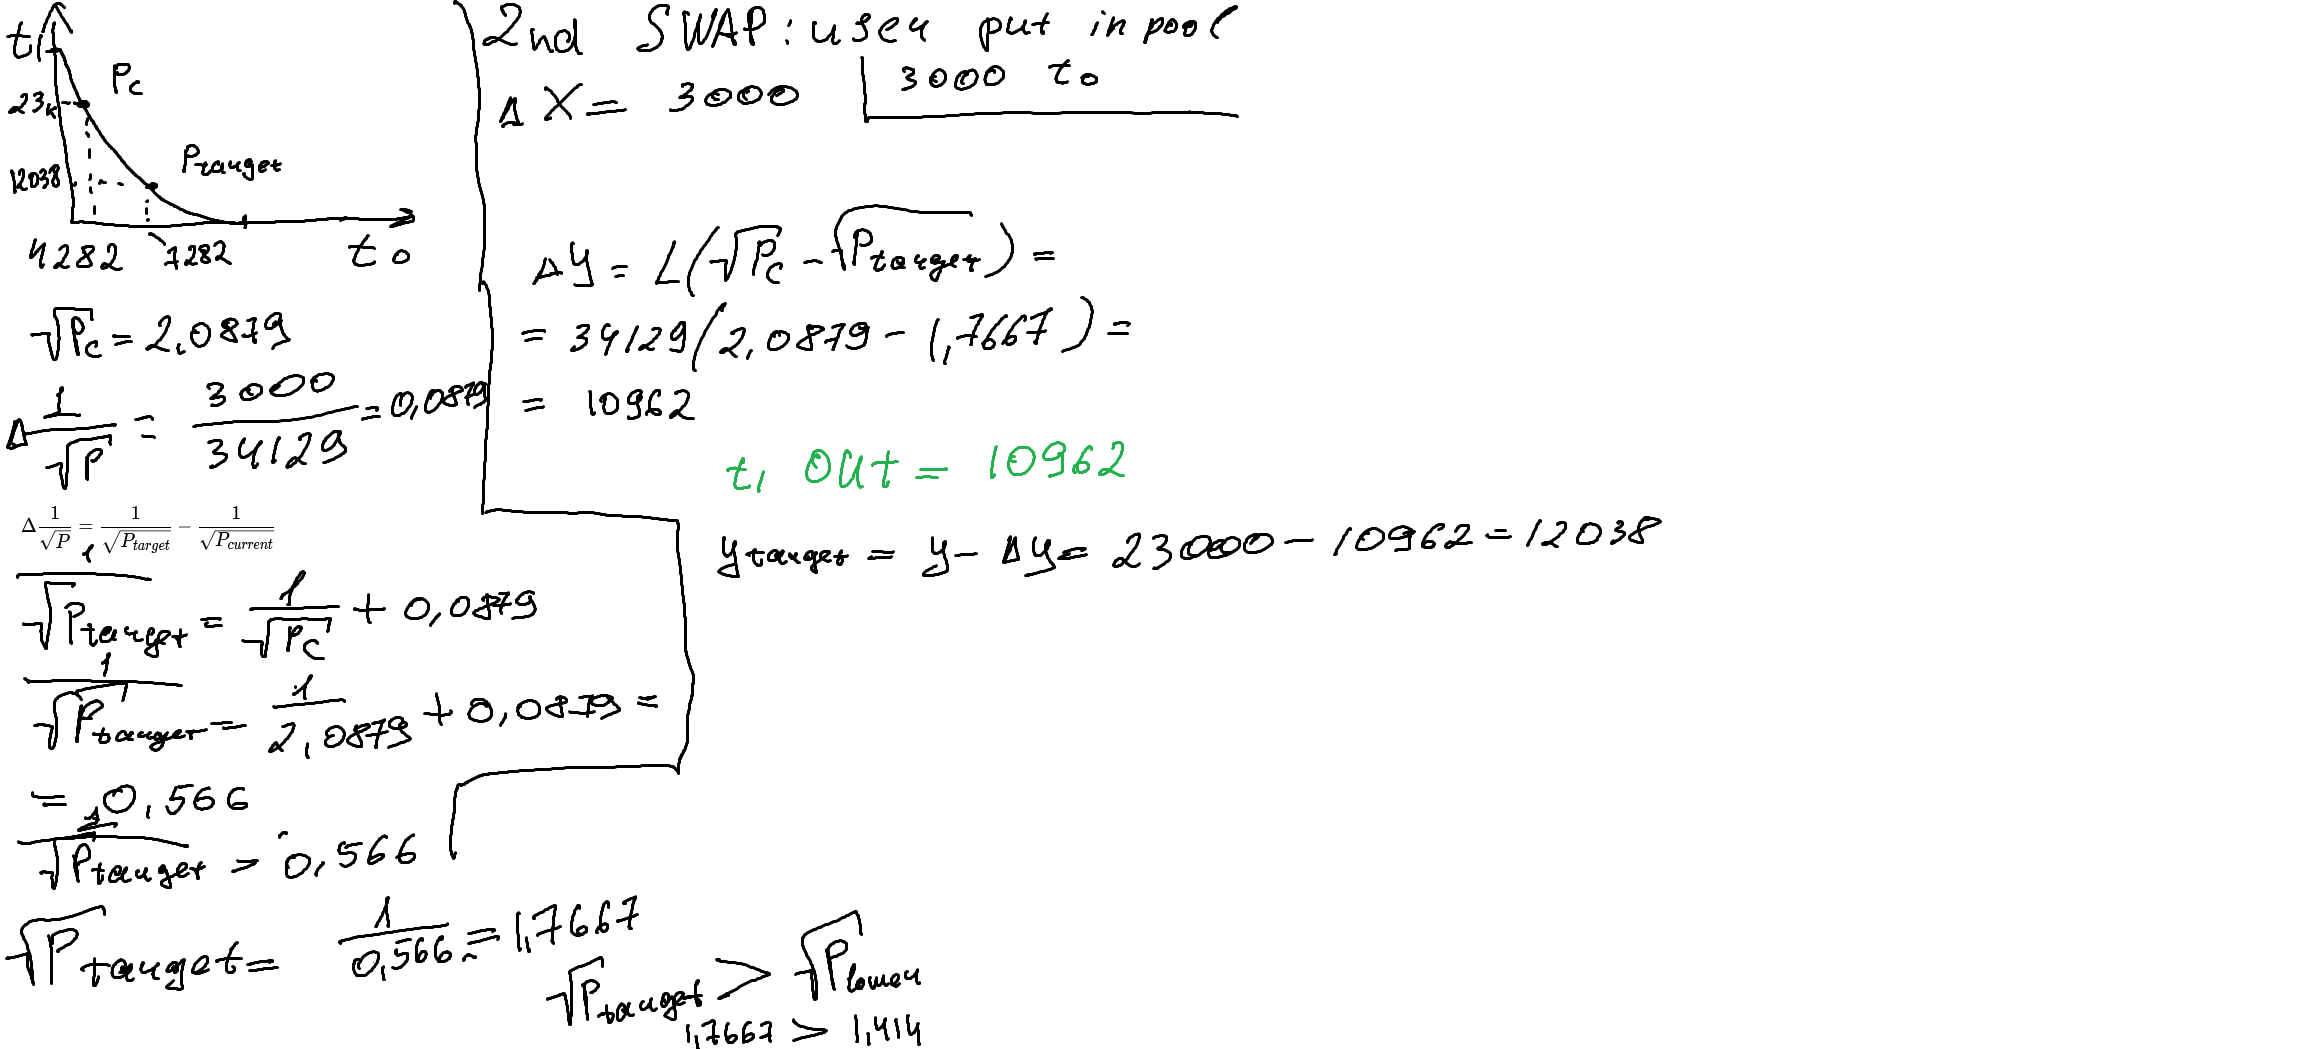 t₁
Pc
23k
Ptarget
12038
4282 7282 t₀
√Pc = 2,0879
Δ 1/√P = 3000/34129 = 0,0879
Δ 1/√P = 1/√P_target − 1/√P_current
1/√Ptarget = 1/√Pc + 0,0879
1/√Ptarget = 1/2,0879 + 0,0879 =
= 0,566
1/√Ptarget = 0,566
√Ptarget = 1/0,566 = 1,7667
√Ptarget > √Plower
1,7667 > 1,414
2nd SWAP: user put in pool
ΔX = 3000 3000 t₀
Δy = L(√Pc − √Ptarget) =
= 34129(2,0879 − 1,7667) =
= 10962
t₁ out = 10962
ytarget = y − Δy = 23000 − 10962 = 12038